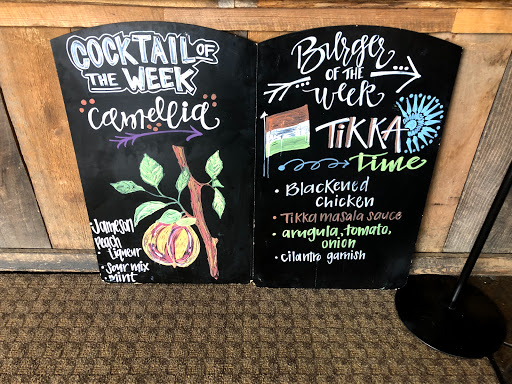 COCKTAIL OF
THE WEEK
camellia
·Jameson
Peach
Liqueur
· Sour mix
· Mint
Burger
OF THE
week
TiKKA
Time
· Blackened
chicken
· Tikka masala sauce
· arugula, tomato,
onion
· cilantro garnish